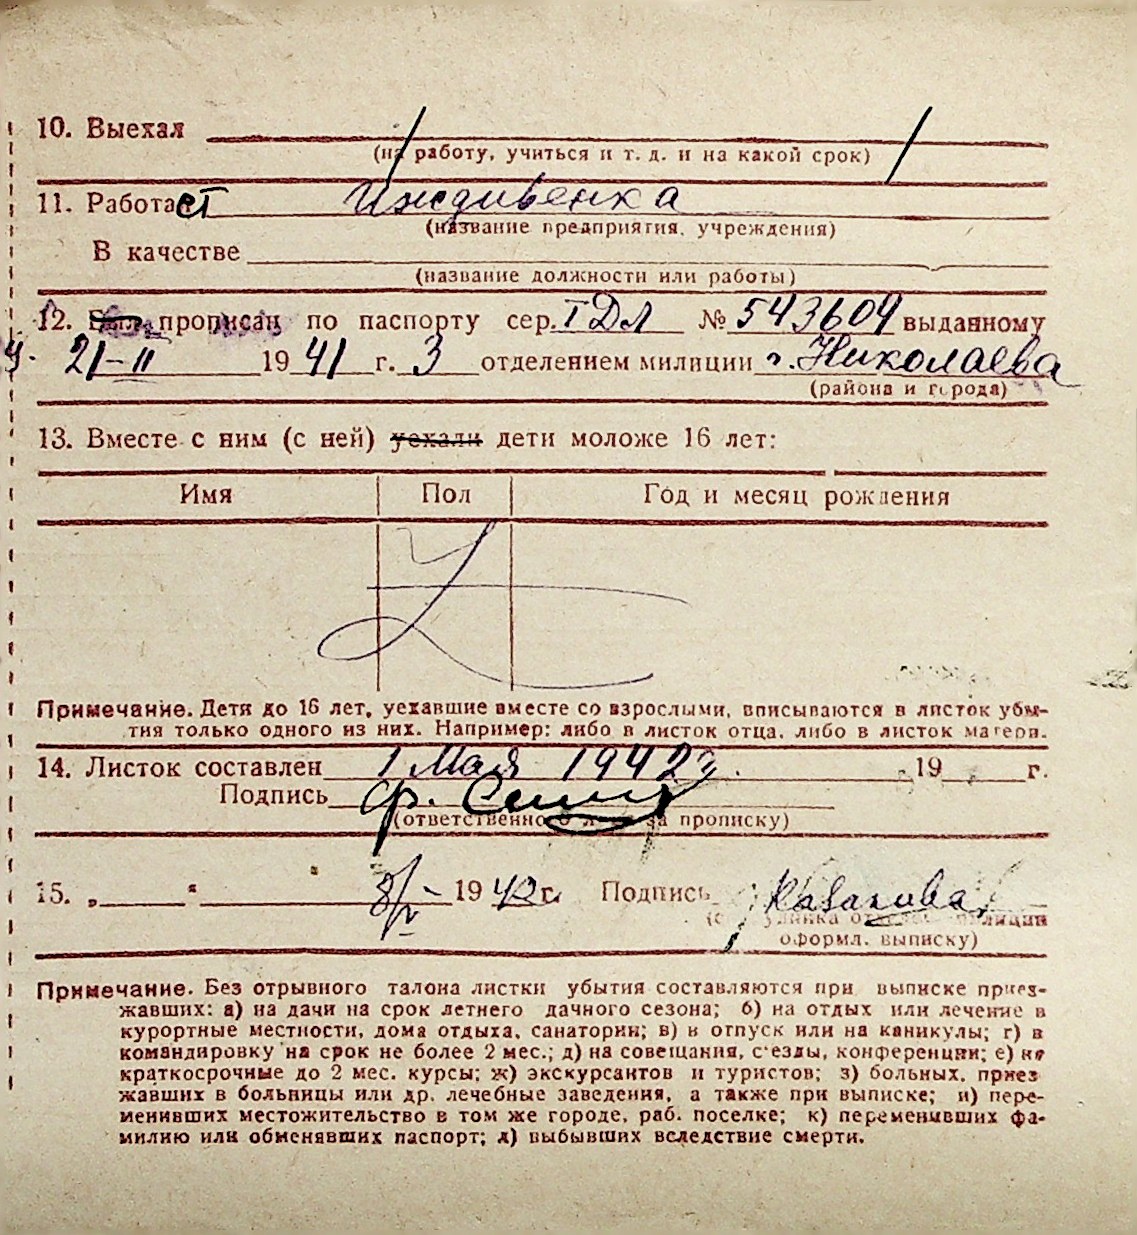 10. Выехал
(на работу, учиться и т. д. и на какой срок)
11. Работает Иждивенка
(название предприятия, учреждения)
В качестве
(название должности или работы)
12. Был прописан по паспорту сер. I ДЛ № 543604 выданному
21-II 1941 г. 3 отделением милиции г. Николаева
(района и города)
13. Вместе с ним (с ней) уехали дети моложе 16 лет:
Имя Пол Год и месяц рождения
Примечание. Дети до 16 лет, уехавшие вместе со взрослыми, вписываются в листок убы-
тия только одного из них. Например: либо в листок отца, либо в листок матери.
14. Листок составлен 1 Мая 1942 г. 19 г.
Подпись
(ответственного за прописку)
15. „ “ 8/V 1942 г. Подпись Казакова
оформл. выписку)
Примечание. Без отрывного талона листки убытия составляются при выписке приез-
жавших: а) на дачи на срок летнего дачного сезона; б) на отдых или лечение в
курортные местности, дома отдыха, санатории; в) в отпуск или на каникулы; г) в
командировку на срок не более 2 мес.; д) на совещания, с'езды, конференции; е) на
краткосрочные до 2 мес. курсы; ж) экскурсантов и туристов; з) больных, приез
жавших в больницы или др. лечебные заведения, а также при выписке; и) пере-
менивших местожительство в том же городе, раб. поселке; к) переменивших фа-
милию или обменявших паспорт; л) выбывших вследствие смерти.